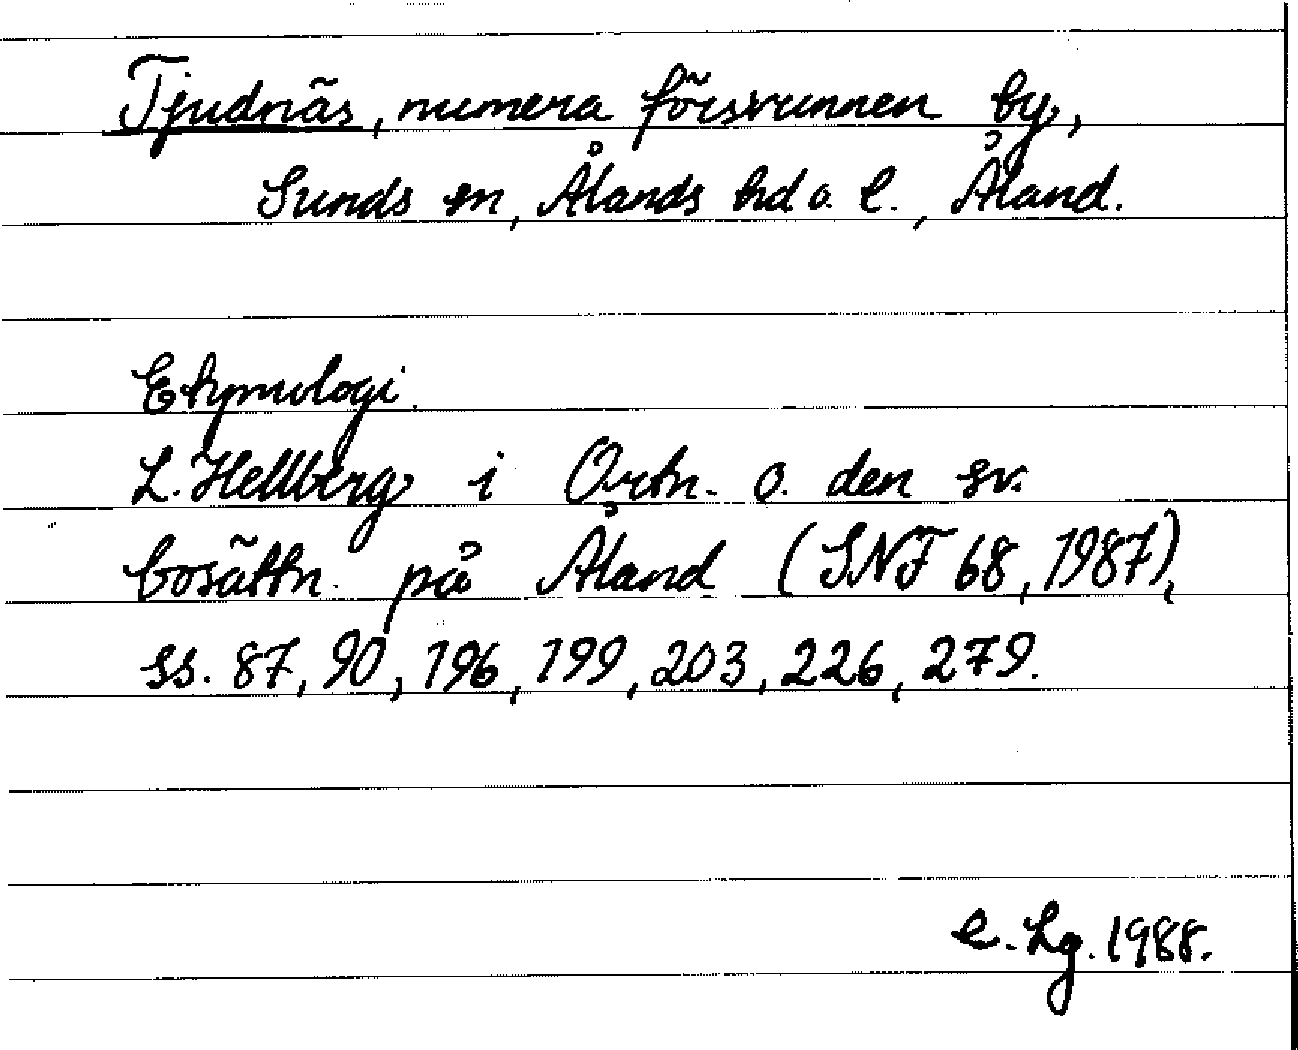 Tjudnäs, numera försvunnen by,
Sunds sn, Ålands hd o. l., Åland.
Etymologi.
L. Hellberg i Ortn. o. den sv.
bosättn. på Åland (SNF 68, 1987),
ss. 87, 90, 196, 199, 203, 226, 279.
C. Lg. 1988.